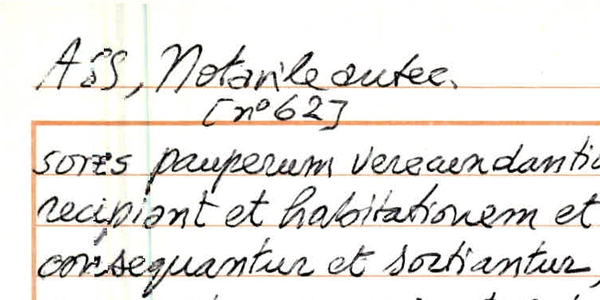 ASS, Notarile antec.
[nº 62]
sores pauperum verecundantiu
recipiant et habitationem et
consequantur et sortiantur,